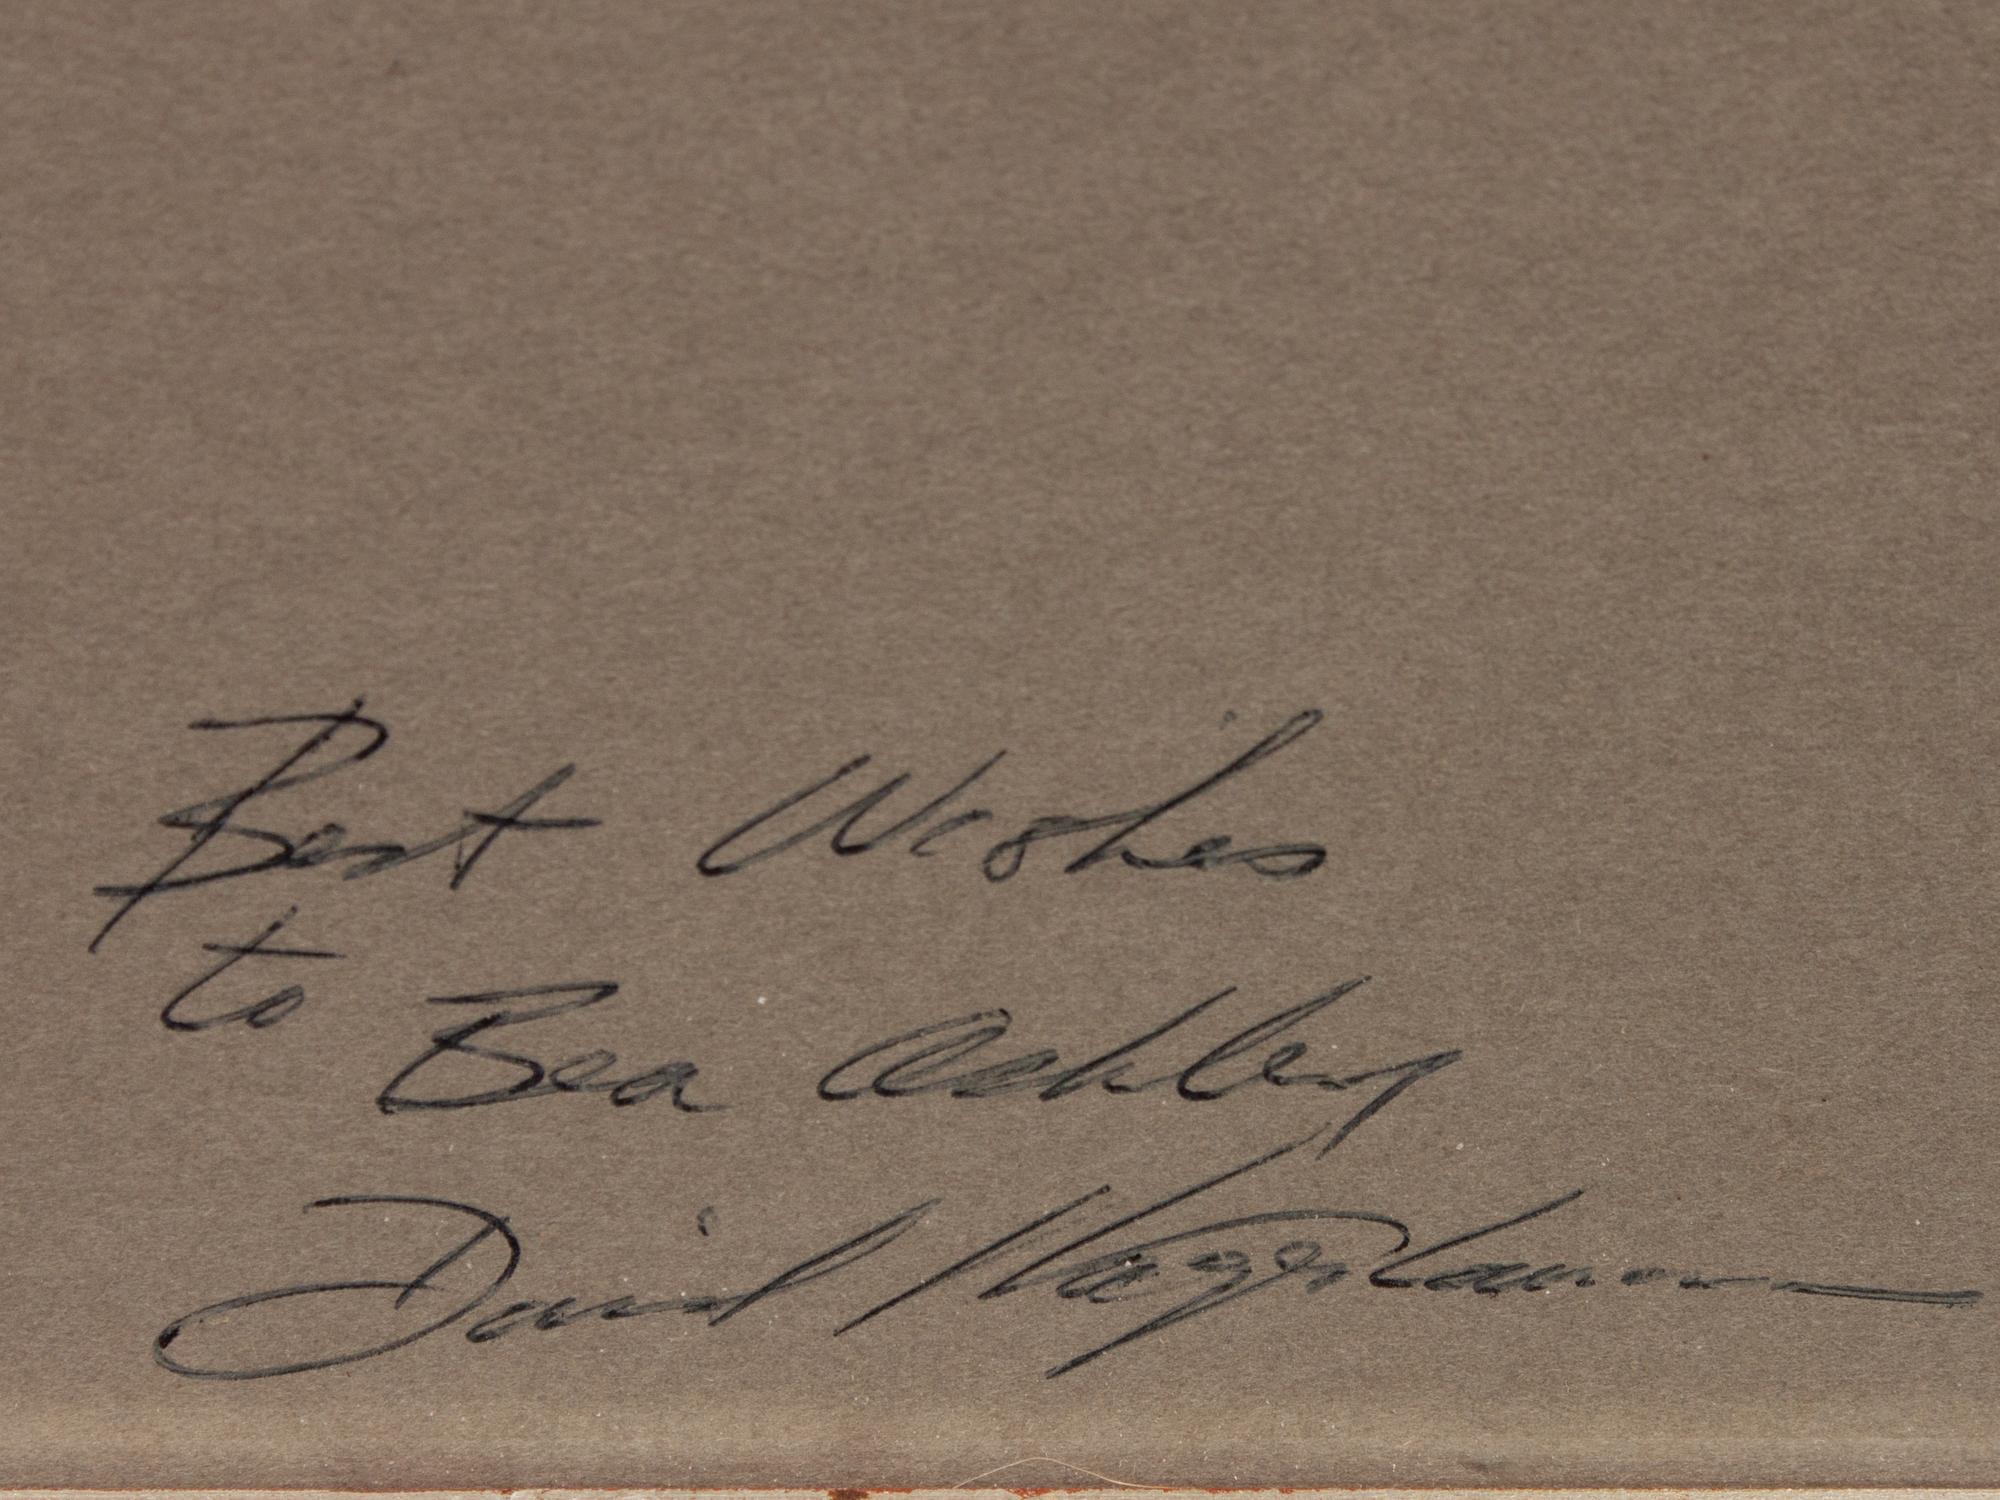 Best Wishes
to Bea Ashley
David